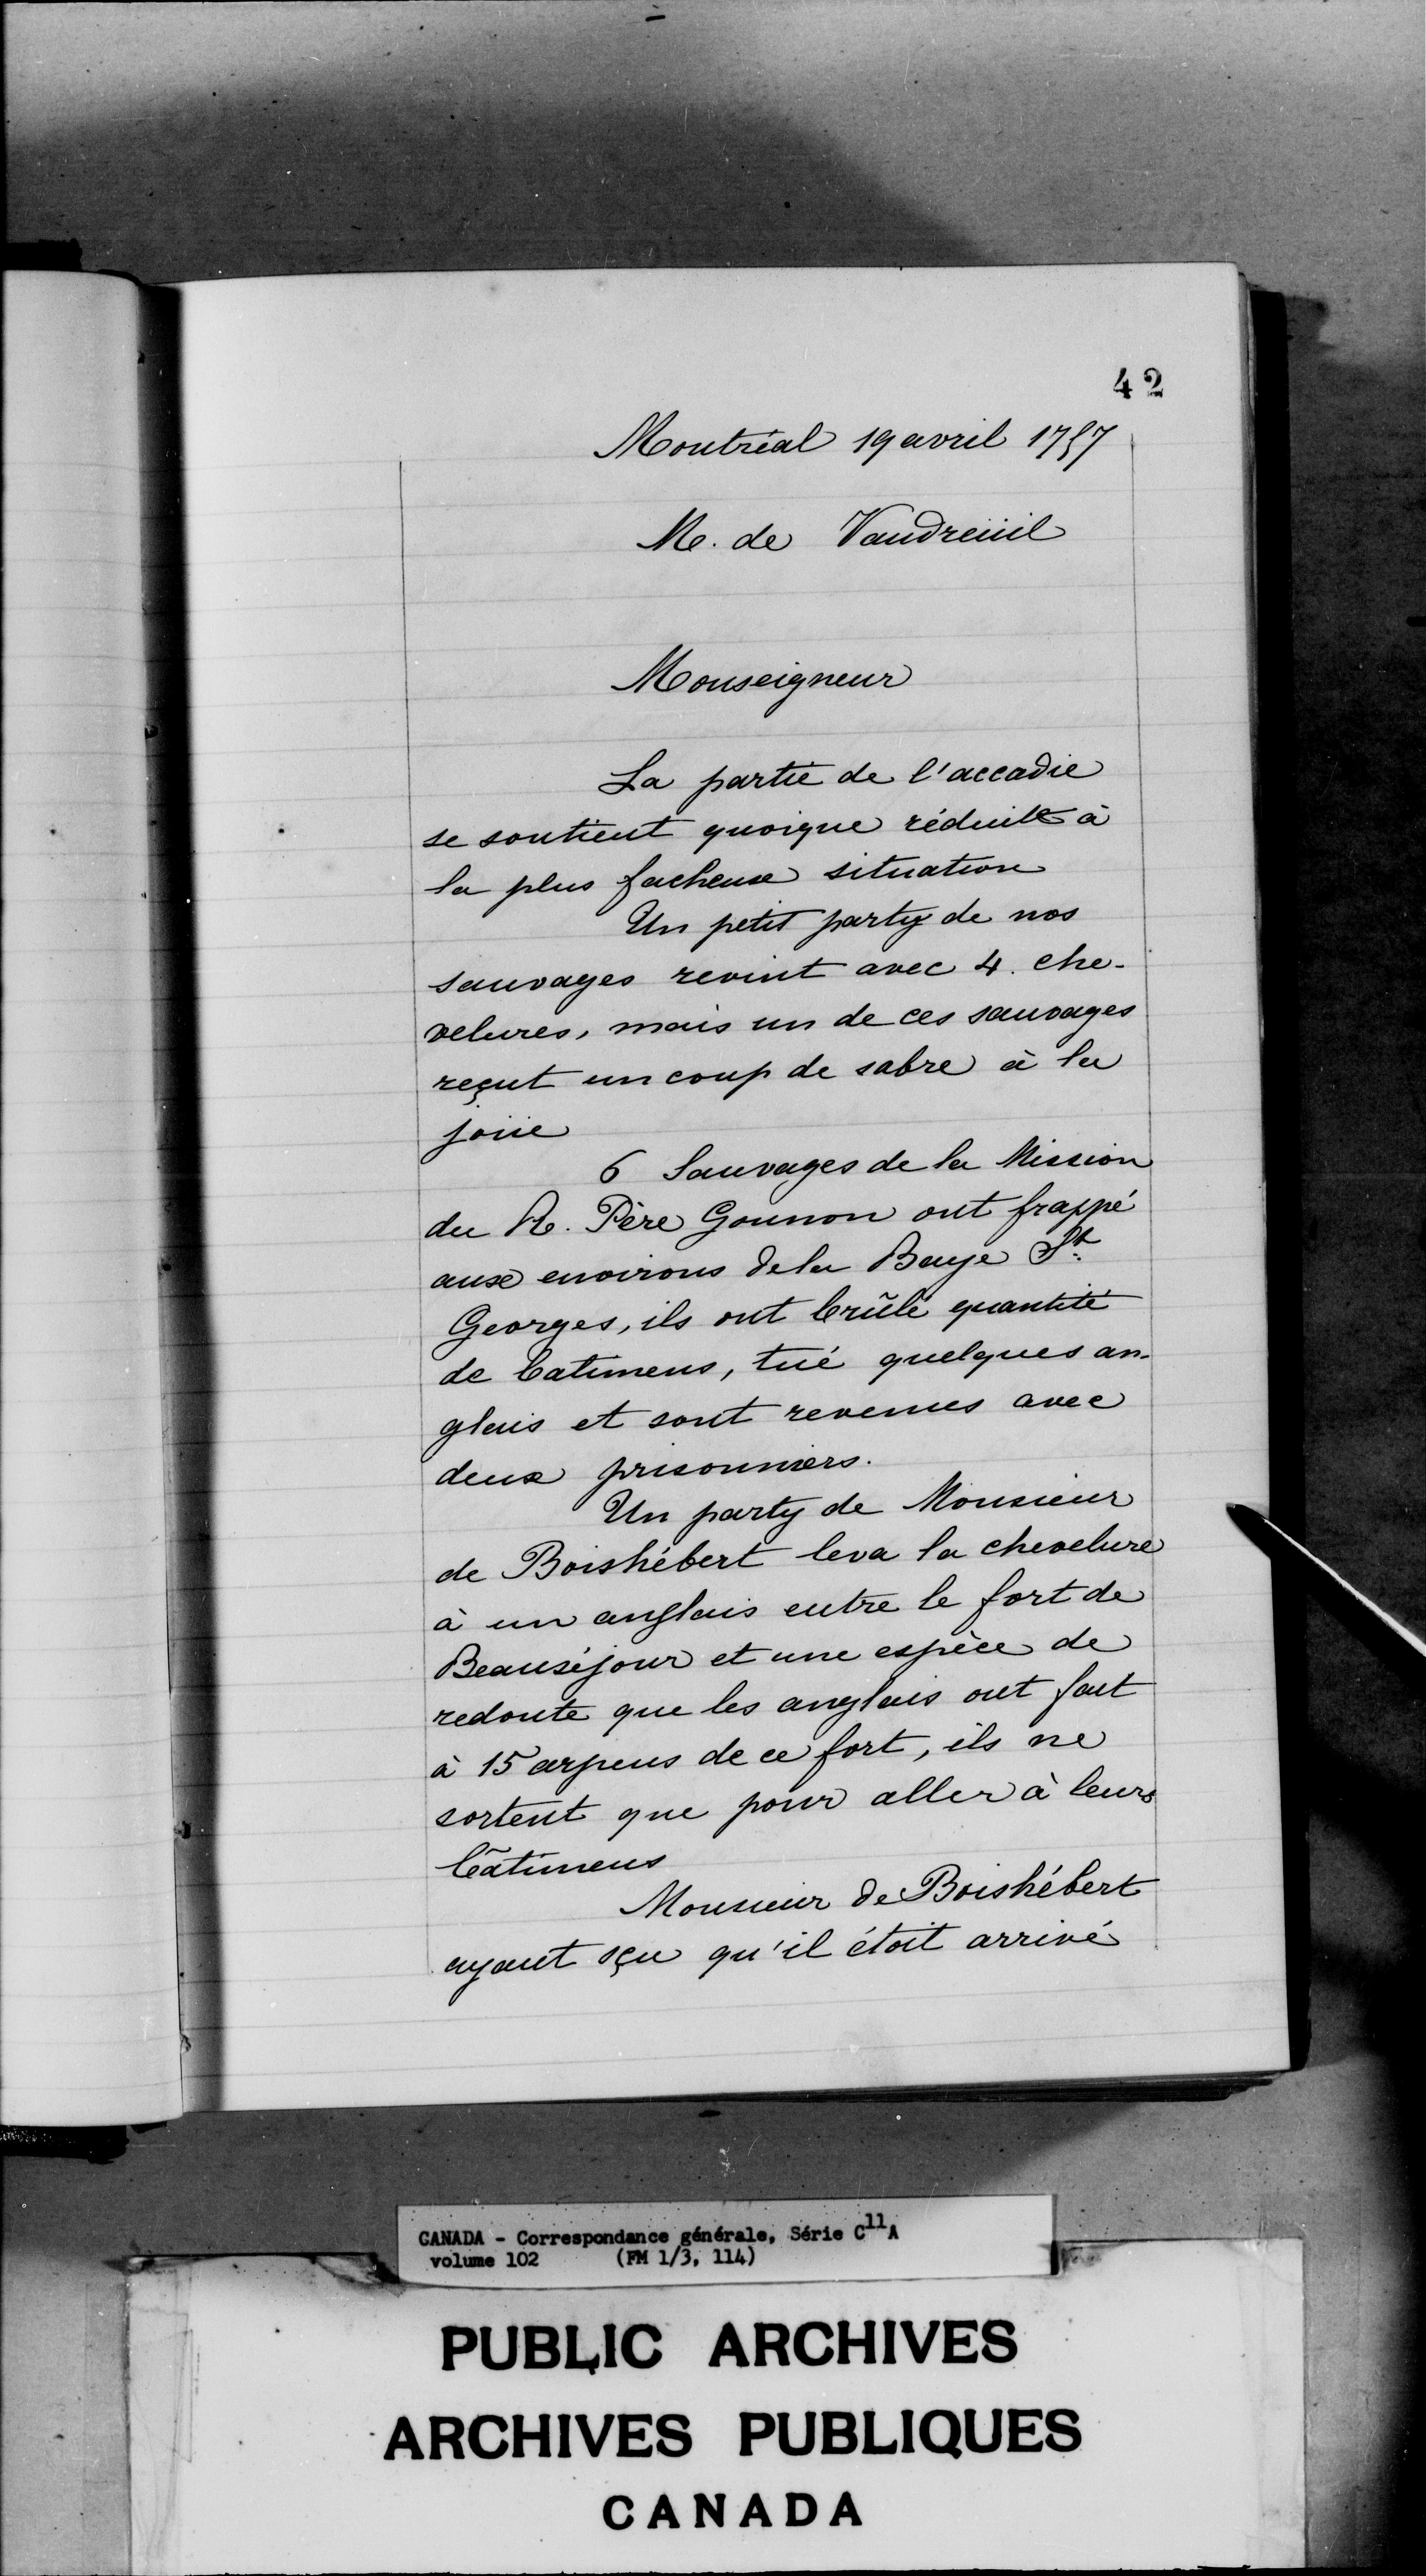 42
Montréal 19 avril 1757
M. de Vaudreüil
Monseigneur
La partie de l'accadie
se soutient quoique réduite à
la plus facheuse situation
Un petit party de nos
sauvages revint avec 4. che-
velures, mais un de ces sauvages
reçut un coup de sabre à la
joüe
6 Sauvages de la Mission
du R. Père Gounon ont frappé
aux environs de la Baye St.
Georges, ils ont brûlé quantité
de batimens, tué quelques an-
glais et sont revenus avec
deux prisonniers.
Un party de Monsieur
de Boishébert leva la chevelure
à un anglais entre le fort de
Beauséjour et une espèce de
redoute que les anglais ont fait
à 15 arpens de ce fort, ils ne
sortent que pour aller à leurs
bâtimens
Monsieur de Boishébert
ayant sçu qu'il étoit arrivé
CANADA - Correspondance générale, Série C11A
volume 102 (FM 1/3, 114)
PUBLIC ARCHIVES
ARCHIVES PUBLIQUES
CANADA